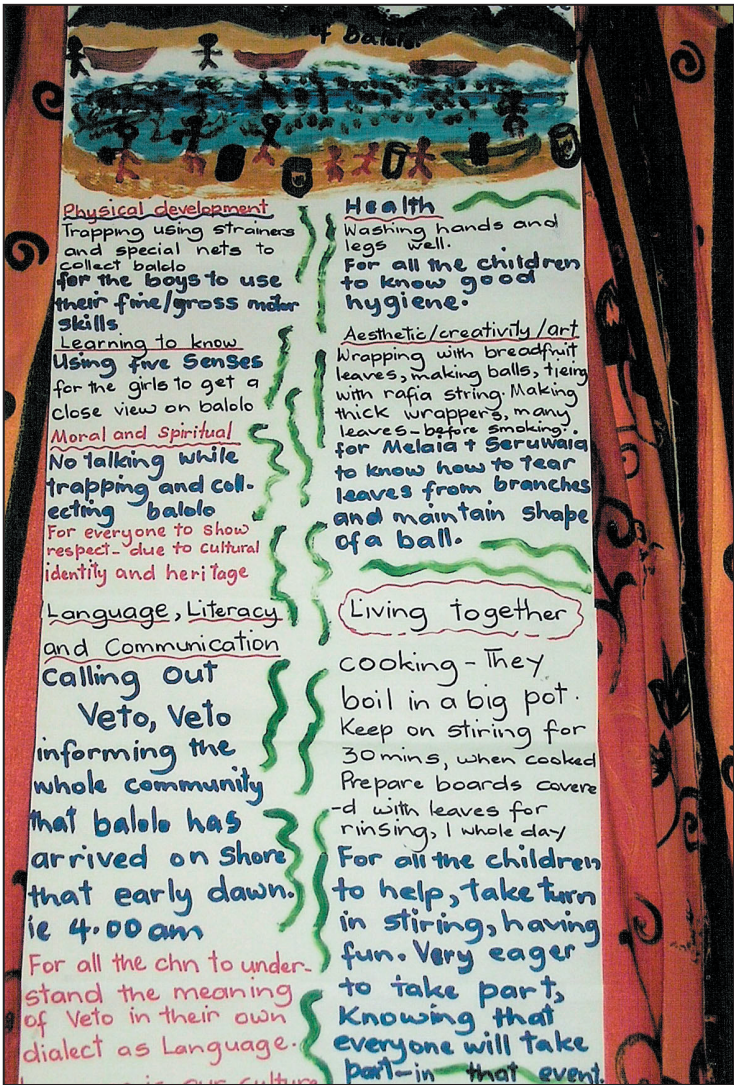 of Balolo.
Physical development
Trapping using strainers
and special nets to
collect balolo
for the boys to use
their fine/gross motor
skills
Learning to know
Using five Senses
for the girls to get a
close view on balolo
Moral and Spiritual
No talking while
trapping and coll-
ecting balolo
For everyone to show
respect- due to cultural
identity and heritage
Language, Literacy
and Communication
Calling out
Veto, Veto
informing the
whole community
that balolo has
arrived on shore
that early dawn.
ie 4.00am
For all the chn to under-
stand the meaning
of Veto in their own
dialect as Language.
is our culture
Health
Washing hands and
legs well.
For all the children
to know good
hygiene.
Aesthetic/creativity/art
Wrapping with breadfruit
leaves, making balls, tieing
with rafia string. Making
thick wrappers, many
leaves-before smoking..
for Melaia + Seruwaia
to know how to tear
leaves from branches
and maintain shape
of a ball.
Living together
cooking - They
boil in a big pot.
Keep on stiring for
30mins, when cooked
Prepare boards covere
-d with leaves for
rinsing, 1 whole day
For all the children
to help, take turn
in stiring, having
fun. Very eager
to take part,
Knowing that
everyone will take
part-in that event.